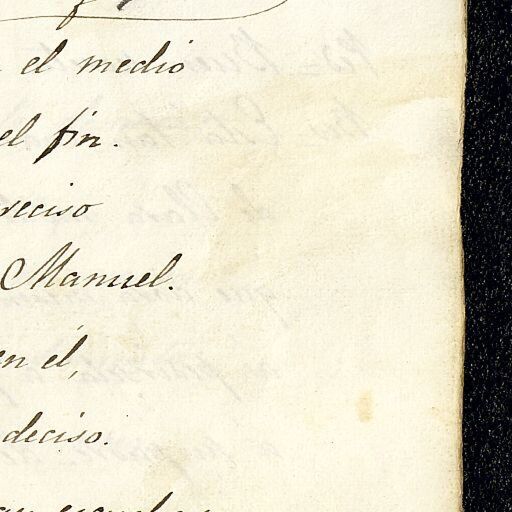 el medio
el fin.
reciso
Manuel.
en él,
deciso.